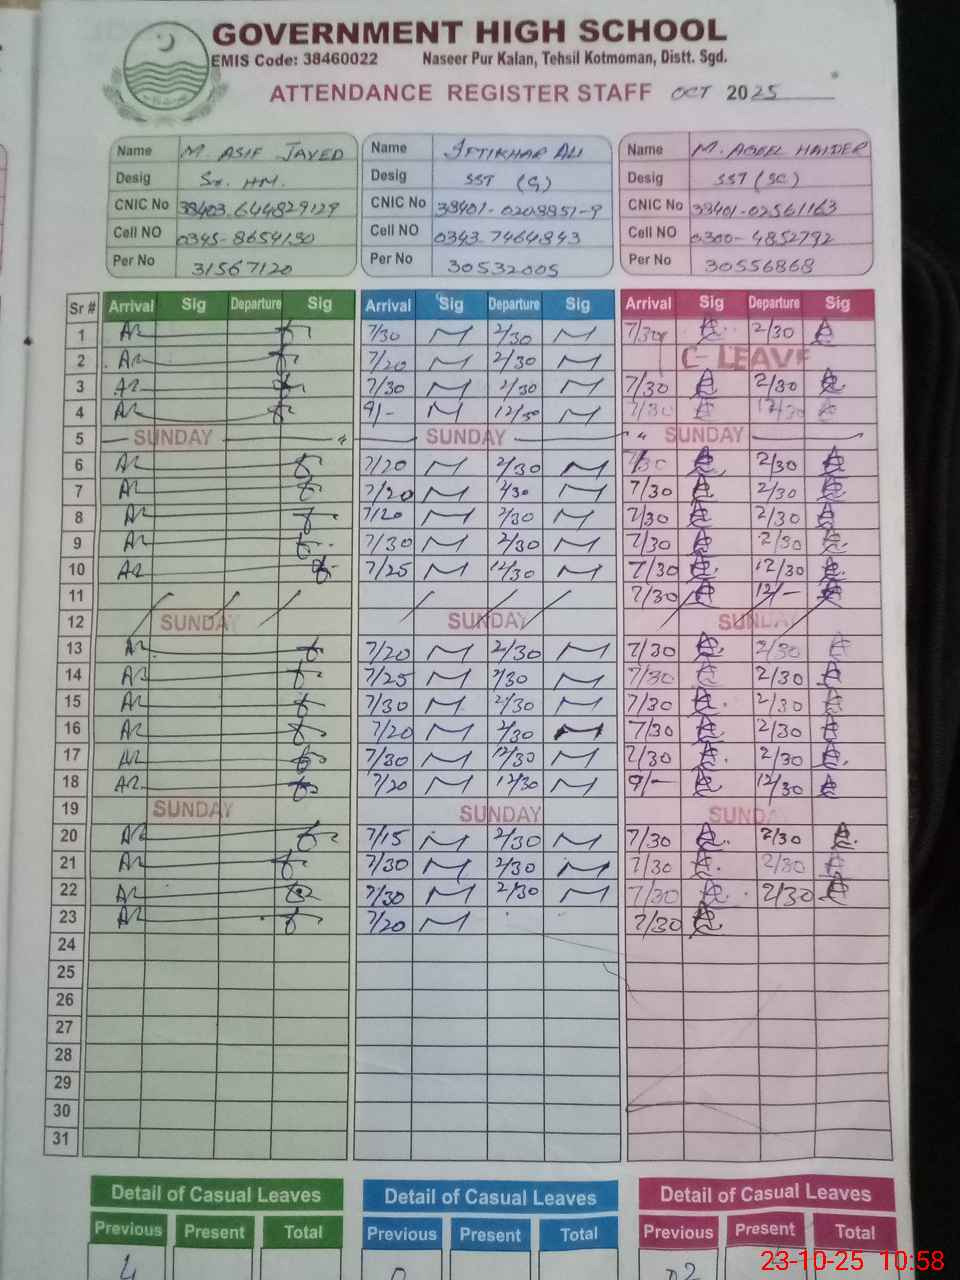 GOVERNMENT HIGH SCHOOL
EMIS Code: 38460022 Naseer Pur Kalan, Tehsil Kotmoman, Distt. Sgd.
ATTENDANCE REGISTER STAFF OCT 2025
Name M. ASIF JAVED Name IFTIKHAR ALI Name M. ADEEL HAIDER
Desig Sr. HM. Desig SST (G) Desig SST (SC)
CNIC No 38403.644829129 CNIC No 38401-0208851-9 CNIC No 38401-02561163
Cell NO 0345-8654150 Cell NO 0343-7464843 Cell NO 0300-4852792
Per No 31567120 Per No 30532005 Per No 30556868
Sr # Arrival Sig Departure Sig Arrival Sig Departure Sig Arrival Sig Departure Sig
1 7/30 2/30 7/30 2/30
2 7/20 2/30 C-LEAVE
3 7/30 2/30 7/30 2/30
4 9/- 12/30 7/30 12/30
5 SUNDAY SUNDAY SUNDAY
6 7/20 2/30 7/30 2/30
7 7/20 2/30 7/30 2/30
8 7/20 2/30 7/30 2/30
9 7/30 2/30 7/30 2/30
10 7/25 12/30 7/30 12/30
11 7/30 12/-
12 SUNDAY SUNDAY SUNDAY
13 7/20 2/30 7/30 2/30
14 7/25 2/30 7/30 2/30
15 7/30 2/30 7/30 2/30
16 7/20 2/30 7/30 2/30
17 7/30 12/30 7/30 2/30
18 7/20 12/30 9/- 12/30
19 SUNDAY SUNDAY SUNDAY
20 7/15 2/30 7/30 2/30
21 7/30 2/30 7/30 2/30
22 7/30 2/30 7/30 2/30
23 7/20 7/30
24
25
26
27
28
29
30
31
Detail of Casual Leaves Detail of Casual Leaves Detail of Casual Leaves
Previous Present Total Previous Present Total Previous Present Total
4 0 02
23-10-25 10:58